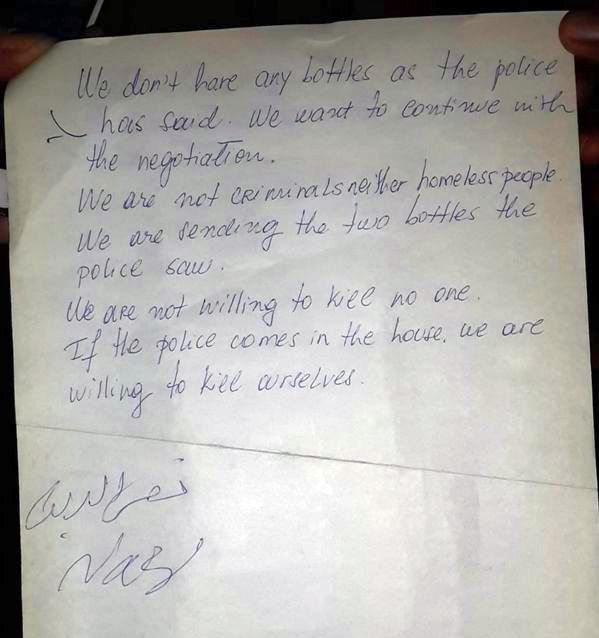 We don't have any bottles as the police
has said. We want to continue with
the negotiation.
We are not criminals neither homeless people.
We are sending the two bottles the
police saw.
We are not willing to kill no one.
If the police comes in the house, we are
willing to kill ourselves.